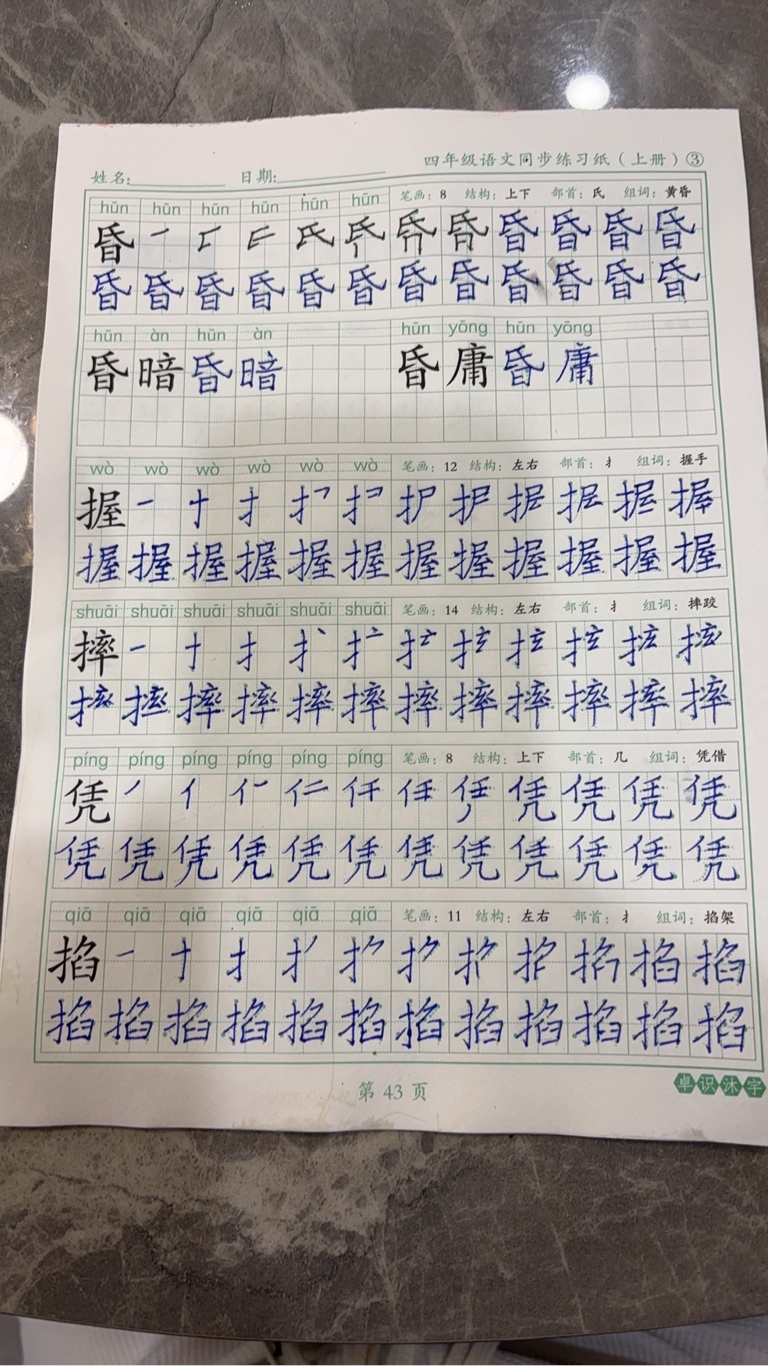 四年级语文同步练习纸（上册）③
姓名: 日期:
hūn hūn hūn hūn hūn hūn 笔画：8 结构：上下 部首：氏 组词：黄昏
昏 昏 昏 昏 昏
昏 昏 昏 昏 昏 昏 昏 昏 昏 昏 昏 昏
hūn àn hūn àn hūn yōng hūn yōng
昏 暗 昏 暗 昏 庸 昏 庸
wò wò wò wò wò wò 笔画：12 结构：左右 部首：扌 组词：握手
握 一 十 扌
握 握 握 握 握 握 握 握 握 握 握 握 握
shuāi shuāi shuāi shuāi shuāi shuāi 笔画：14 结构：左右 部首：扌 组词：摔跤
摔 一 十 扌
摔 摔 摔 摔 摔 摔 摔 摔 摔 摔
píng píng píng píng píng píng 笔画：8 结构：上下 部首：几 组词：凭借
凭 凭 凭 凭 凭
凭 凭 凭 凭 凭 凭 凭 凭 凭 凭 凭 凭
qiā qiā qiā qiā qiā qiā 笔画：11 结构：左右 部首：扌 组词：掐架
掐 一 十 扌 掐 掐
掐 掐 掐 掐 掐 掐 掐 掐 掐 掐 掐 掐
第 43 页
卓识沐字